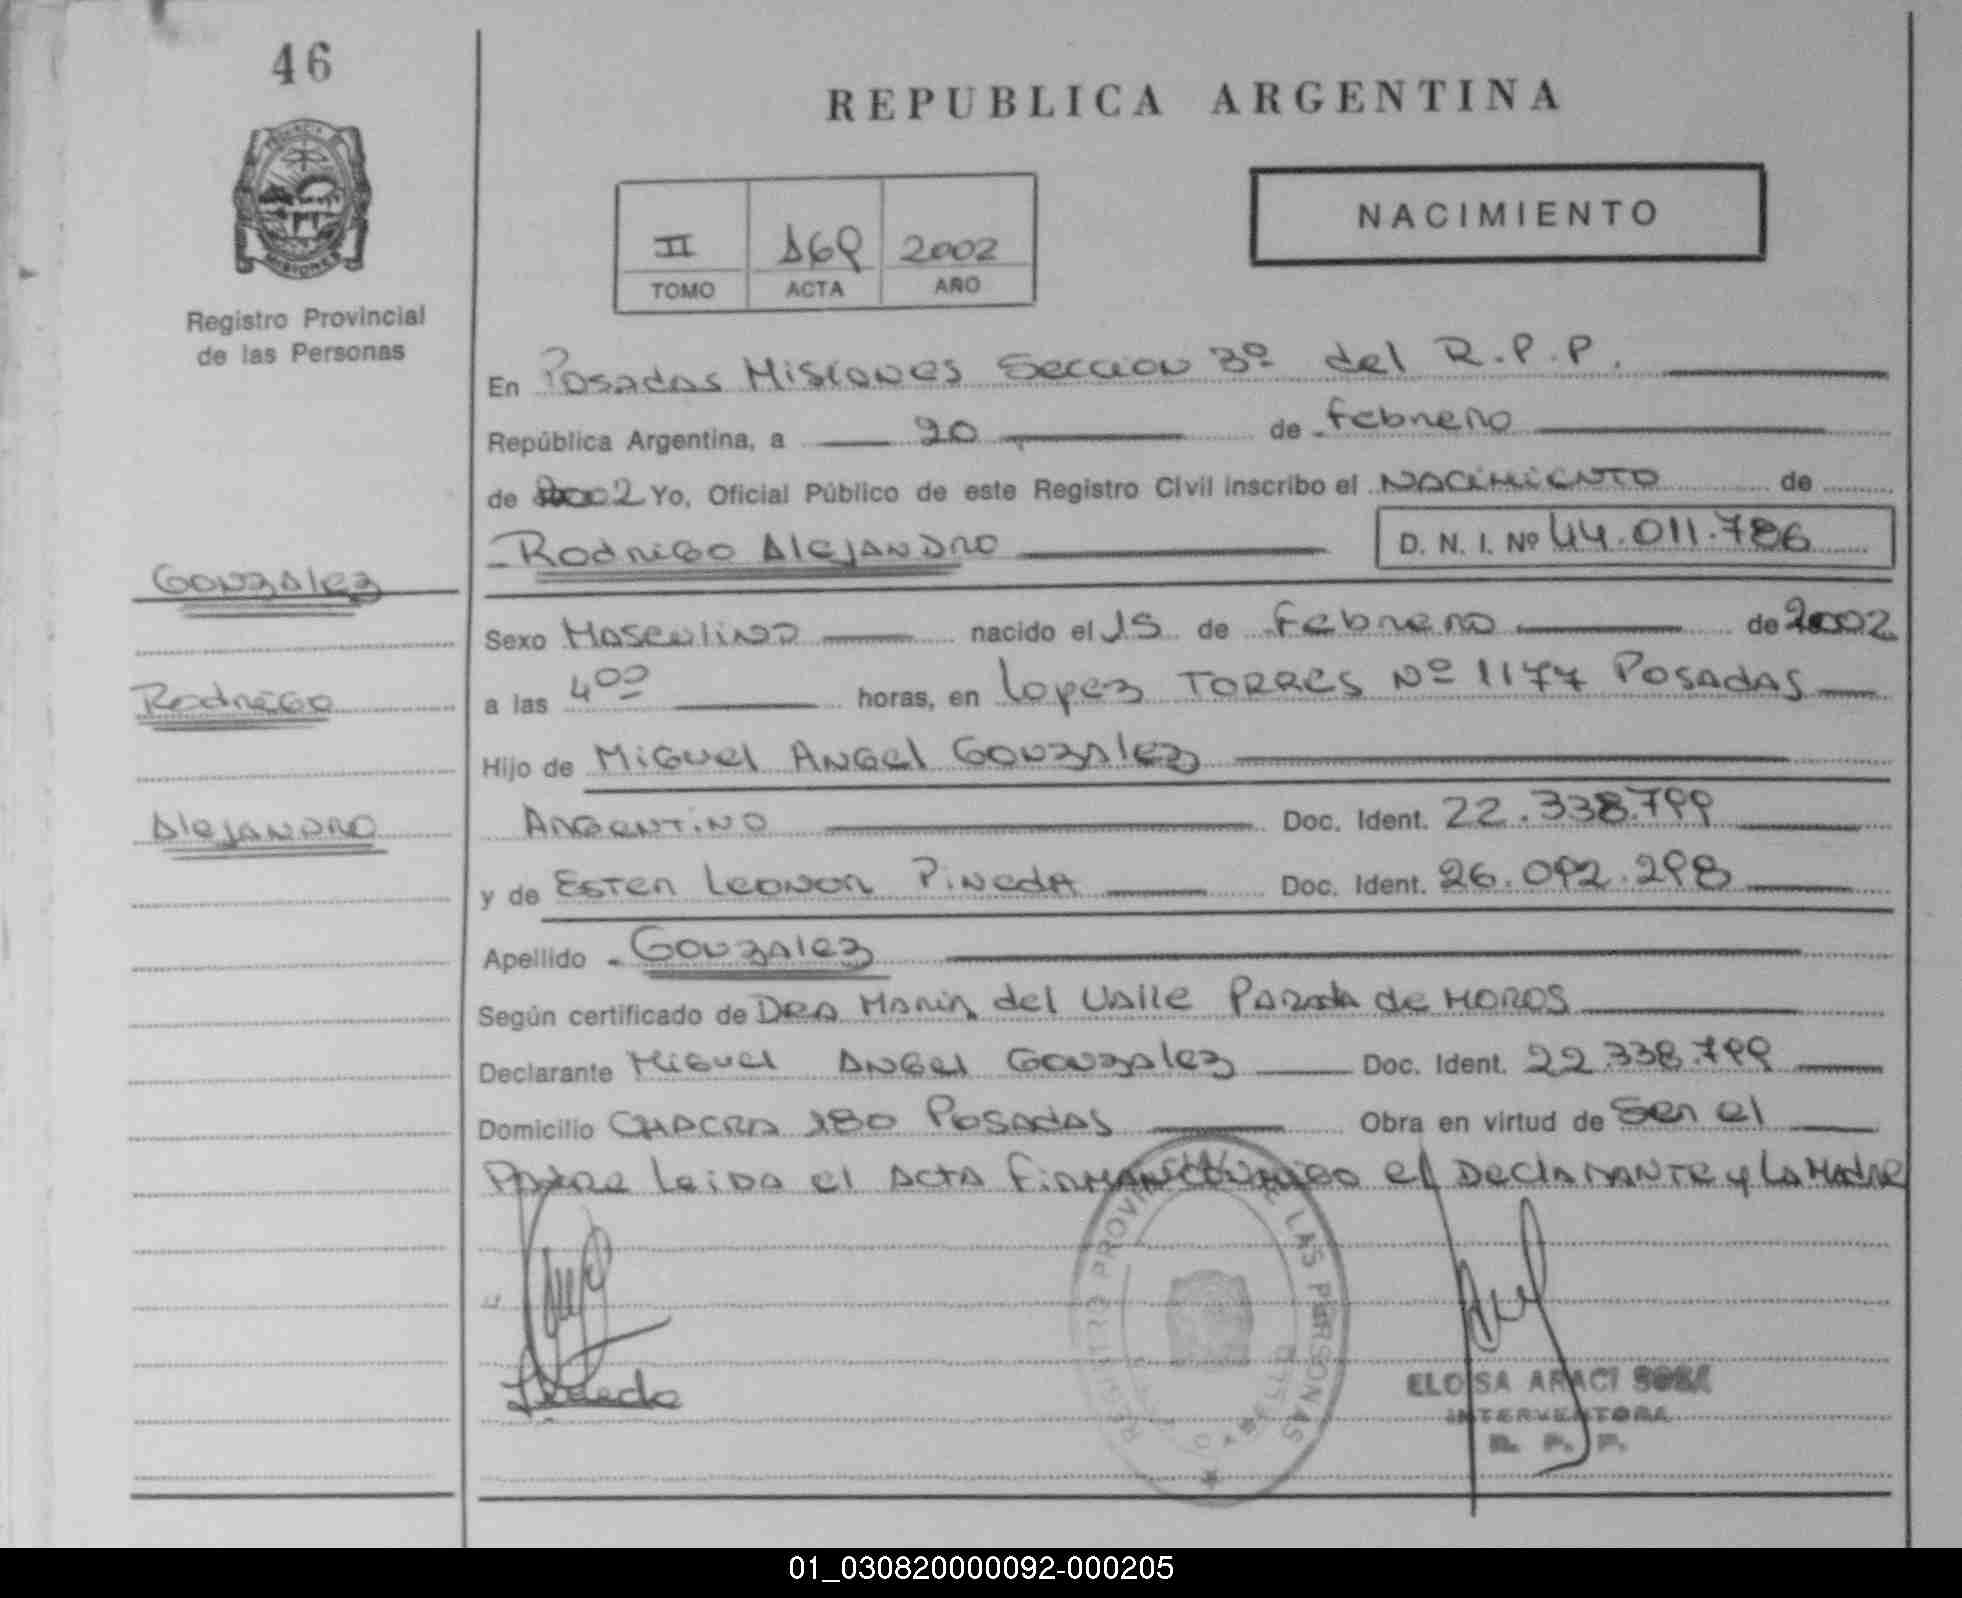 46
REPUBLICA ARGENTINA
NACIMIENTO
II 169 2002
TOMO ACTA AÑO
MISIONES
Registro Provincial
de las Personas
En Posadas Misiones Seccion 3º del R.P.P.
República Argentina, a 20 de Febrero
de 2002 Yo, Oficial Público de este Registro Civil inscribo el NACIMIENTO de
Rodrigo Alejandro D. N. I. Nº 44.011.786
Gonzalez
Sexo Masculino nacido el 15 de Febrero de 2002
Rodrigo
a las 4 00 horas, en Lopez TORRES Nº 1177 POSADAS
Hijo de Miguel Angel Gonzalez
Alejandro
Argentino Doc. Ident. 22.338.799
y de Ester Leonor Pineda Doc. Ident. 26.092.298
Apellido Gonzalez
Según certificado de Dra Maria del Valle Parada de Moros
Declarante Miguel Angel Gonzalez Doc. Ident. 22.338.799
Domicilio Chacra 180 Posadas Obra en virtud de Ser el
Padre Leida el Acta Firman Conmigo el Declarante y La Madre
REGISTRO PROVINCIAL DE LAS PERSONAS
ELOISA ARACI SOSA
INTERVENTORA
R. P. P.
01_030820000092-000205